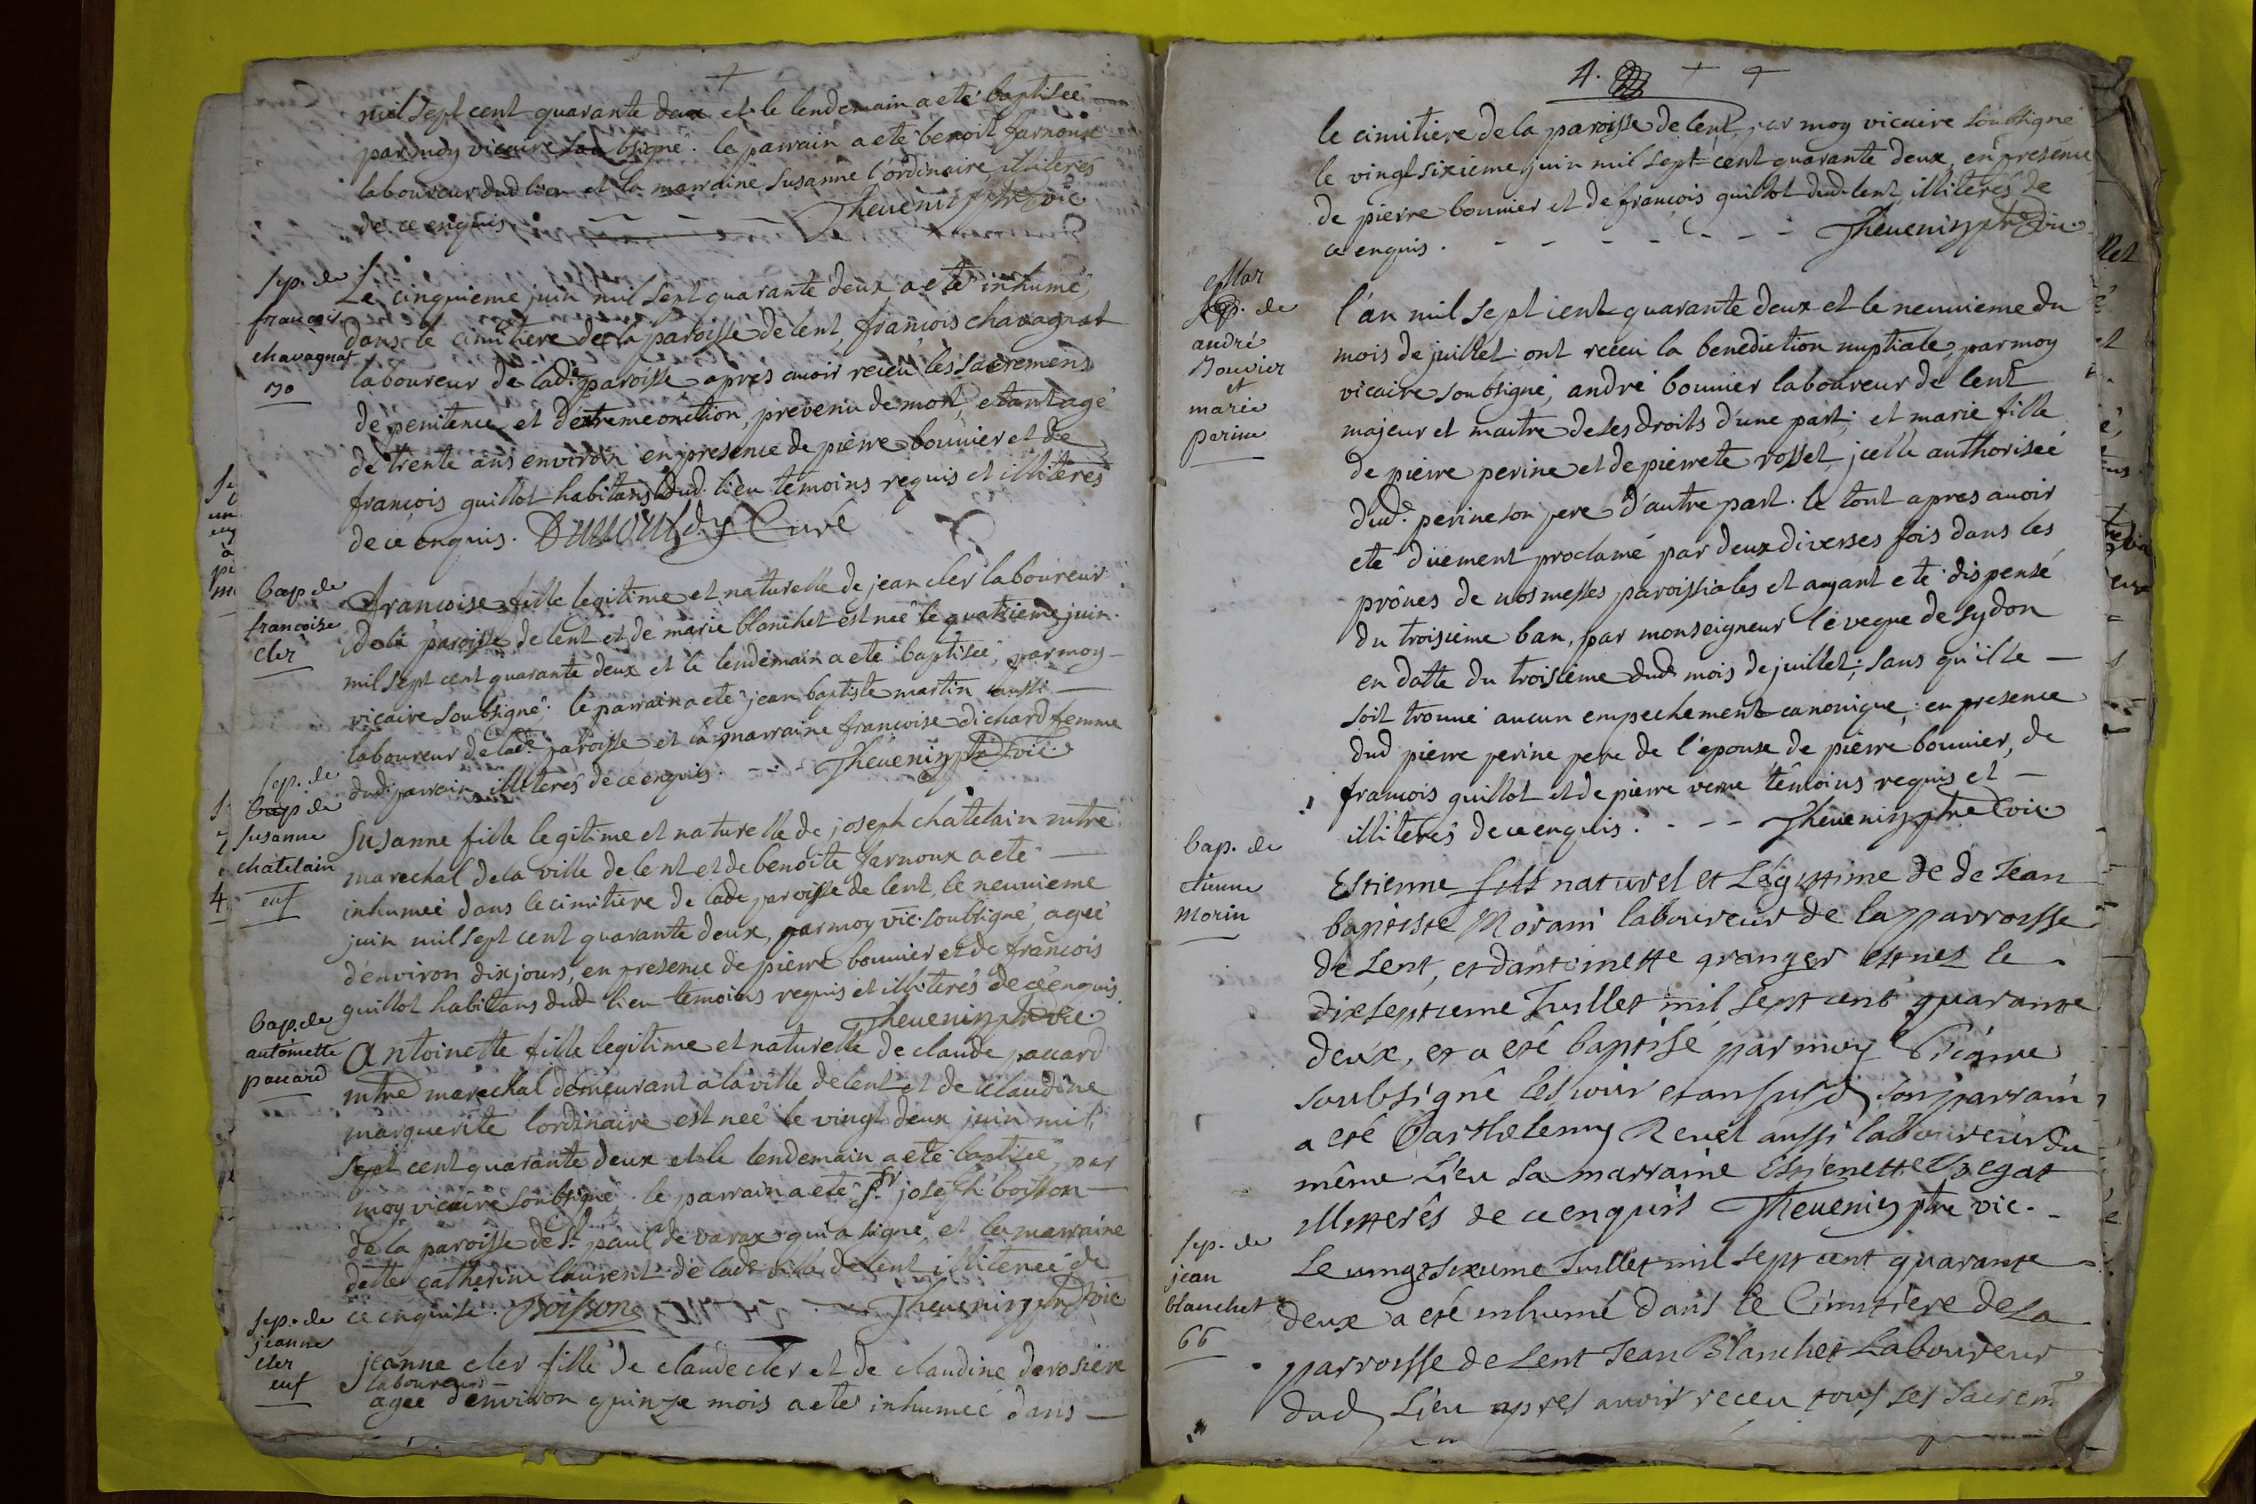 mil sept cent quarante deux et le lendemain a eté baptisée
par moy vicaire soubsigné. le parrain a eté benoit farnoux
laboureur dud lieu et la marraine susanne l'ordinaire illiterés
de ce enquis Thevenin ptre vic
sep. de
francois
chavagnat
30
Le cinquieme juin mil sept quarante deux a eté inhumé,
dans le cimitiere de la paroisse de lent, francois chavagnat
laboureur de lade paroisse apres avoir receu les sacremens
de penitence et d'extremeonction, prevenu de mort, etant agé
de trente ans environ en presence de pierre bouvier et de
francois guillot habitans dud. lieu temoins requis et illiterés
de ce enquis. Curé
bap. de
francoise
cler
francoise fille legitime et naturelle de jean cler laboureur
de la paroisse de lent et de marie blanchet est neé le quatrieme juin
mil sept cent quarante deux et le lendemain a eté baptiseé, par moy
vicaire soubsigné; le parrain a eté jean baptiste martin aussi
laboureur de lade paroisse et la marraine francoise dichard femme
dud. parrain illiterés de ce enquis. Thevenin ptre vic.
sep. de
bap de
susanne
chatelain
enf
Susanne fille legitime et naturelle de joseph chatelain mtre
marechal de la ville de lent et de benoite farnoux a eté
inhumeé dans le cimitiere de lade paroisse de lent, le neuvieme
juin mil sept cent quarante deux, par moy vic. soubsigné, ageé
d'environ dix jours, en presence de pierre bouvier et de francois
guillot habitans dud lieu temoins requis et illiterés de ce enquis
Thevenin ptre vic.
bap. de
antoinette
pauard
Antoinette fille legitime et naturelle de claude pauard
mtre marechal demeurant a la ville de lent et de claudine
marguerite lordinaire est neé le vingt deux juin mil
sept cent quarante deux et le lendemain a eté baptiseé, par
moy vicaire soubsigné. le parrain a eté sr joseph boisson
de la paroisse de St paul de varax qui a signé, et la marraine
delle catherine laurent de lade ville de lent illitereé de
ce enquise. Boisson Thevenin ptre vic
sep. de
jeanne
cler
enf
jeanne cler fille de claude cler et de claudine derosiere
laboureurs
ageé d'environ quinze mois a eté inhumeé dans
4.
le cimitiere de la paroisse de lent, par moy vicaire soubsigné
le vingt sixieme juin mil sept cent quarante deux, en presence
de pierre bouvier et de francois guillot dud lent, illiterés de
ce enquis. Thevenin ptre vic.
Mar
sep. de
andré
Bouvier
et
marie
perine
l'an mil sept cent quarante deux et le neuvieme du
mois de juillet ont receu la benediction nuptiale, par moy
vicaire soubsigné, andré bouvier laboureur de lent
majeur et maitre de ses droits d'une part; et marie fille
de pierre perine et de pierrete rosset, jcelle authoriseé
dud. perine son pere d'autre part. le tout apres avoir
eté düement proclamé par deux diverses fois dans les
prônes de nos messes paroissiales et ayant eté dispensé
du troisieme ban, par monseigneur l'eveque de sydon
en datte du troisieme dud mois de juillet; sans qu'il se
soit trouvé aucun empechement canonique; en presence
dud pierre perine pere de l'epouse de pierre bouvier, de
francois guillot et de pierre verne témoins requis et
illiterés de ce enquis. Thevenin ptre vic.
bap. de
etienne
morin
Estienne fils naturel et Légittime de de Jean
baptiste Morain laboureur de la parroisse
de Lent, et dantoinette granger est nez le
dixseptieme Juillet mil sept cent quarante
deux, et a eté baptisé par moy Vicaire
soubsigné son parrain
a eté Barthelemy Revel aussi laboureur du
même Lieu sa marraine Estienette
illitterés de ce enquis Thevenin ptre vic.
sep. de
jean
blanchet
66
Le vingt sixieme Juillet mil sept cent quarante
deux a eté inhumé dans le Cimitiere de la
parroisse de Lent Jean Blanchet Laboureur
dud Lieu apres avoir receu tous ses sacrem